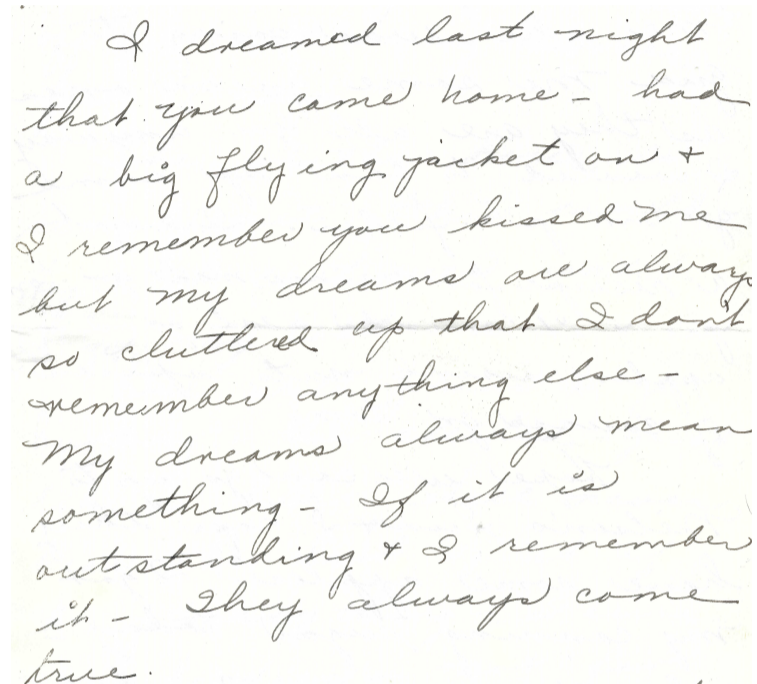 I dreamed last night
that you came home - had
a big flying jacket on &
I remember you kissed me
but my dreams are always
so cluttered up that I don't
remember anything else -
My dreams always mean
something - If it is
outstanding & I remember
it - They always come
true.